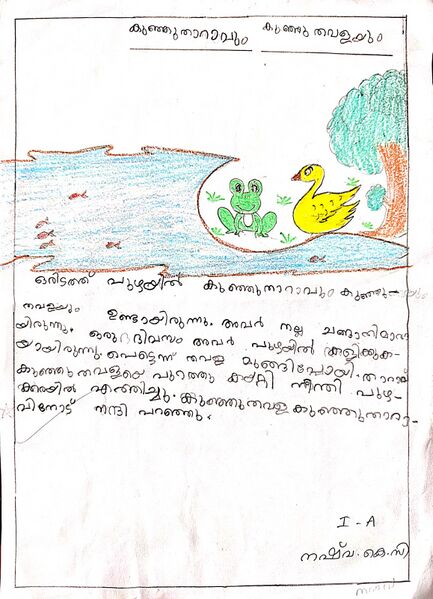 കുഞ്ഞുതാറാവും കുഞ്ഞു തവളയും
ഒരിടത്ത് പുഴയിൽ കുഞ്ഞുനാറാവും കുഞ്ഞു-
തവളയും ഉണ്ടായിരുന്നു. അവർ നല്ല ചങ്ങാതിമാരാ
യിരുന്നു. ഒരു ദിവസം അവർ പുഴയിൽ കളിക്കുക-
യായിരുന്നു. പെട്ടെന്ന് തവള മുങ്ങിപ്പോയി. താറാവ്
കുഞ്ഞുതവളയെ പുറത്തു കയറ്റി നീന്തി പുഴ-
ക്കരയിൽ എത്തിച്ചു. കുഞ്ഞുതവള കുഞ്ഞുതാറാ-
വിനോട് നന്ദി പറഞ്ഞു.
I - A
നഷ്‌വ. കെ.സി